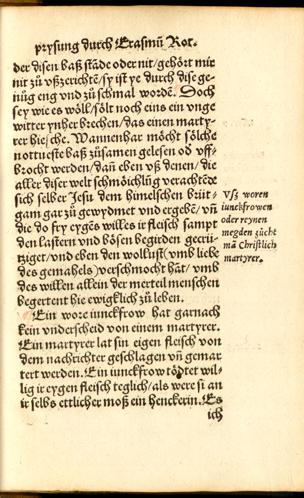 prysung durch Erasmū Rot.
der disen baß stāde oder nit/gehört mir
nit zů vßzerichtē/sy ist ye durch dise ge-
nůg eng vnd zů schmal wordē. Doch
sey wie es wöll/sölt noch eins ein vnge
witter ynher brechen/das einen marty-
rer hiesche. Wannenhar möcht sölche
notuueste baß zůsamen gelesen od vff-
brocht werden/dañ eben vß denen/die
aller diser welt schmöichlūg verachtēde
sich selber Jesu dem himelschen brüt-
gam gar zů gewydmet vnd ergebē/vñ
die do fry eygēs willes ir fleisch sampt
den lastern vnd bösen begirden gecrü-
tziget/vnd eben den wollust/vmb liebe
des gemahels)verschmocht hāt/vmb
des willen allein der merteil menschen
begertent hie ewigklich zů leben.
Ein wore iunckfrow hat garnach
kein vnderscheid von einem martyrer.
Ein martyrer lat sin eigen fleisch von
dem nachrichter geschlagen vñ gemar
tert werden. Ein iunckfrow tödtet wil-
lig ir eygen fleisch teglich/als were si an
ir selbs ettlicher moß ein henckerin. Es
ich
Vß woren
iunckfrowen
oder reynen
megden zücht
mā Christlich
martyrer.